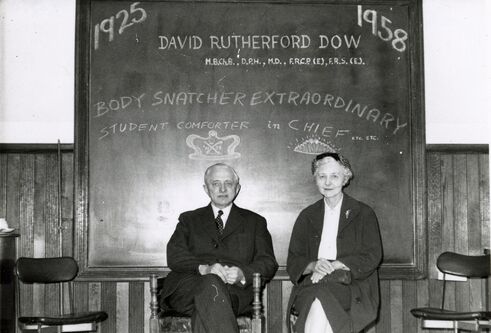 1925 1958
DAVID RUTHERFORD DOW
M.B.Ch.B., D.P.H., M.D., F.R.C.P.(E), F.R.S.(E).
BODY SNATCHER EXTRAORDINARY
STUDENT COMFORTER in CHIEF ETC. ETC.